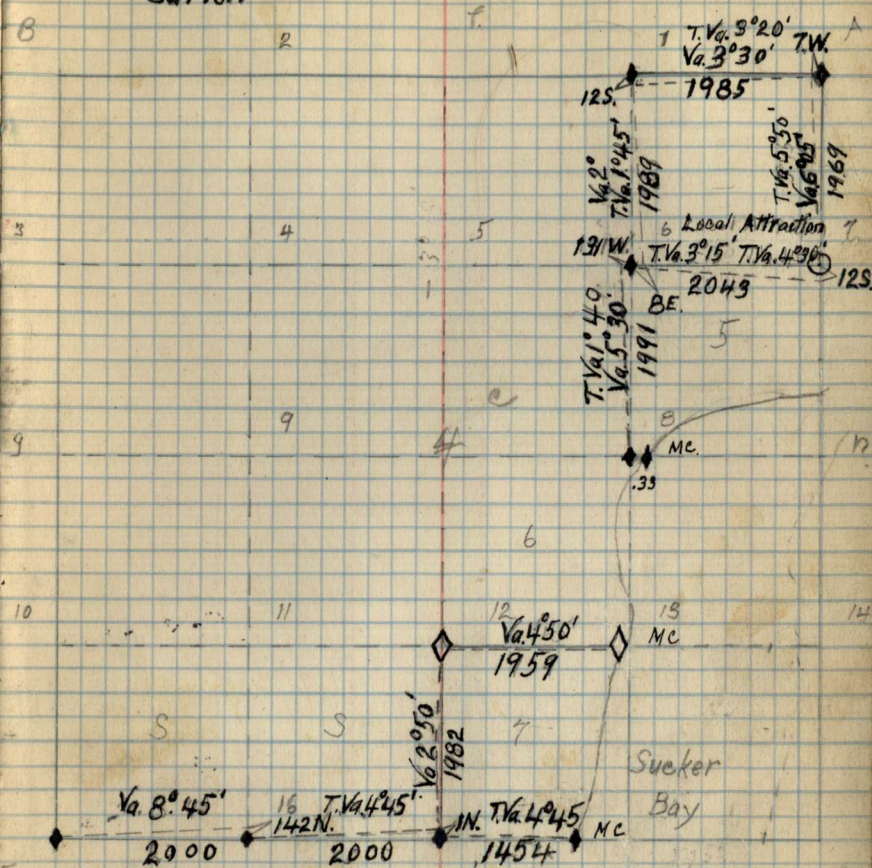 B 2 1 A
T.Va. 3°20' T.W.
Va. 3°30'
12S. 1985
Va. 2°
T.Va. 1°45'
1989
T.Va. 5°50'
Va. 6°05'
1969
3 4 5 6 Local Attraction 7
131 W. T.Va. 3°15' T.Va. 4°30'
2043 12S.
8E.
T.Va. 1°40
Va. 5°30'
1991
5
C
9 9 4 8 MC. D
.33
6
10 11 12 13 14
Va. 4°50' MC
1959
Va. 2°50'
1982
S S 7
Sucker
Bay
Va. 8°45' 16 T.Va. 4°45' T.Va. 4°45
142N. 1N. MC
2000 2000 1454